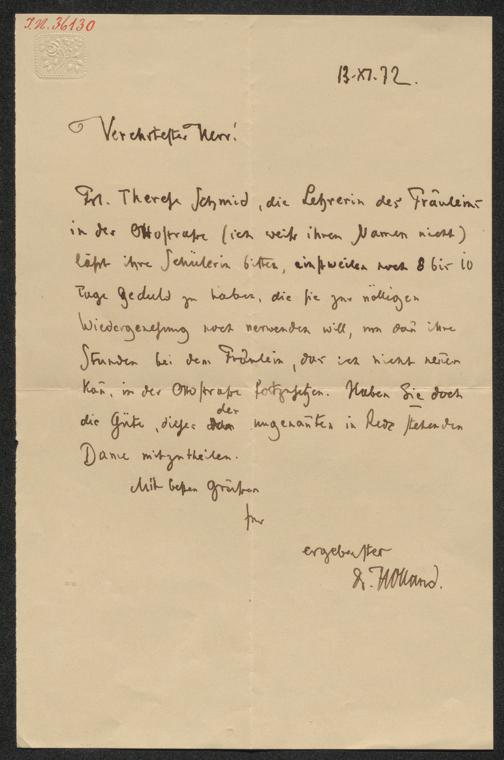 I.N. 36130
13.XI.72.
Verehrtester Herr!
Frl. Therese Schmid, die Lehrerin des Fräuleins
in der Ottostraße (ich weiß ihren Namen nicht)
läßt ihre Schülerin bitten, einstweilen noch 8 bis 10
Tage Geduld zu haben, die sie zur völligen
Wiedergenesung noch verwenden will, um dañ ihre
Stunden bei dem Fräulein, das ich nicht neñen
kañ, in der Ottostraße fortzusetzen. Haben Sie doch
die Güte, dieses der ungenañten in Rede stehenden
Dame mitzutheilen.
Mit besten Grüßen
Ihr
ergebenster
H. Holland.